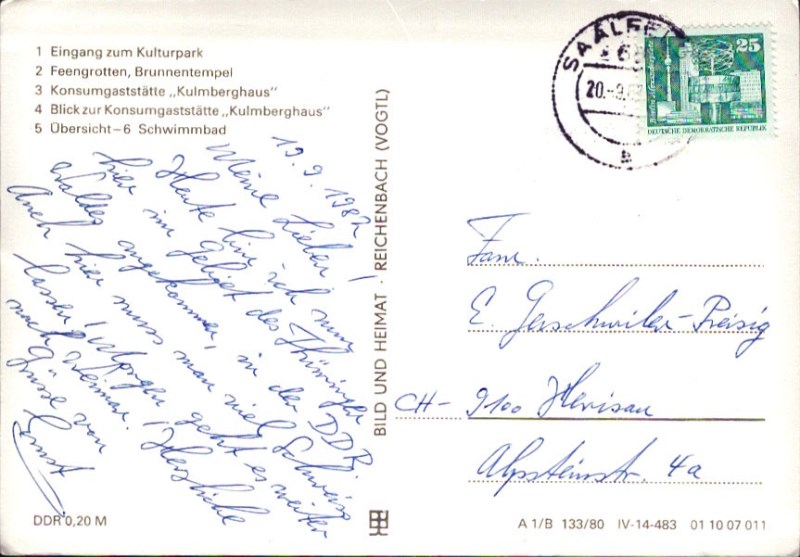 1 Eingang zum Kulturpark
2 Feengrotten, Brunnentempel
3 Konsumgaststätte „Kulmberghaus"
4 Blick zur Konsumgaststätte „Kulmberghaus"
5 Übersicht – 6 Schwimmbad
19.9.1982
Meine Lieben!
Heute bin ich nun
hier im Gebiet des Thüringer
Waldes angekommen, in der DDR.
Auch hier muss man viel Schweiss
lassen! Morgen geht es weiter
nach Weimar! Herzliche
Grüsse von
Ernst
DDR 0,20 M
BILD UND HEIMAT · REICHENBACH (VOGTL)
SAALFELD
20.-9.
25
DEUTSCHE DEMOKRATISCHE REPUBLIK
Fam.
E. Gerschwiler-Preisig
CH- 9100 Herisau
Alpsteinstr. 4a
A 1/B 133/80 IV-14-483 01 10 07 011